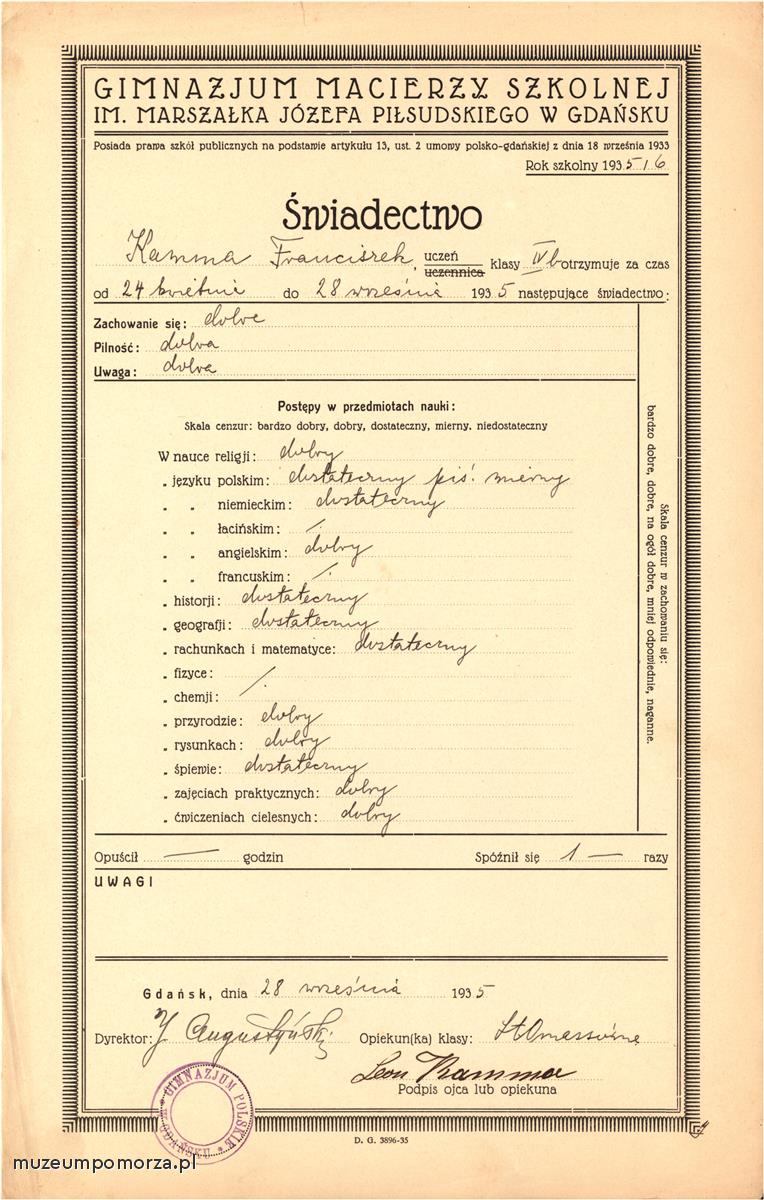 GIMNAZJUM MACIERZY SZKOLNEJ
IM. MARSZAŁKA JÓZEFA PIŁSUDSKIEGO W GDAŃSKU
Posiada prawa szkół publicznych na podstawie artykułu 13, ust. 2 umowy polsko-gdańskiej z dnia 18 września 1933
Rok szkolny 1935/6
Świadectwo
Kamma Franciszek, uczeń uczennica klasy IVb otrzymuje za czas
od 24 kwietnia do 28 września 1935 następujące świadectwo:
Zachowanie się: dobre
Pilność: dobra
Uwaga: dobra
Postępy w przedmiotach nauki:
Skala cenzur: bardzo dobry, dobry, dostateczny, mierny, niedostateczny
W nauce religji: dobry
„ języku polskim: dostateczny piś. mierny
„ „ niemieckim: dostateczny
„ „ łacińskim: /.
„ „ angielskim: dobry
„ „ francuskim: /.
„ historji: dostateczny
„ geografji: dostateczny
„ rachunkach i matematyce: dostateczny
„ fizyce: /.
„ chemji:
„ przyrodzie: dobry
„ rysunkach: dobry
„ śpiewie: dostateczny
„ zajęciach praktycznych: dobry
„ ćwiczeniach cielesnych: dobry
Skala cenzur w zachowaniu się:
bardzo dobre, dobre, na ogół dobre, mniej odpowiednie, naganne.
Opuścił — godzin Spóźnił się 1 — razy
UWAGI
Gdańsk, dnia 28 września 1935
Dyrektor: J. Augustyński Opiekun(ka) klasy:
Leon Kamma
Podpis ojca lub opiekuna
GIMNAZJUM POLSKIE W GDAŃSKU
D. G. 3896-35
muzeumpomorza.pl